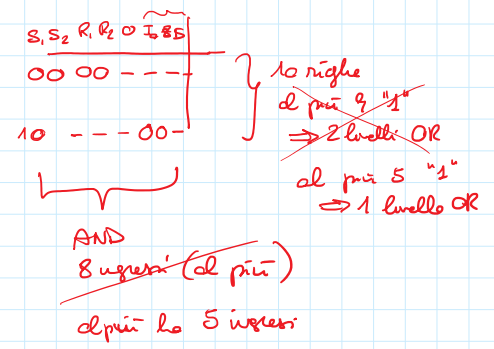 S₁ S₂ R₁ R₂ O I₀
00 00 - - - -
10 - - - 00 -
10 righe
al più 9 "1"
⇒ 2 livelli OR
al più 5 "1"
⇒ 1 livello OR
AND
8 ingressi (al più)
al più ha 5 ingressi